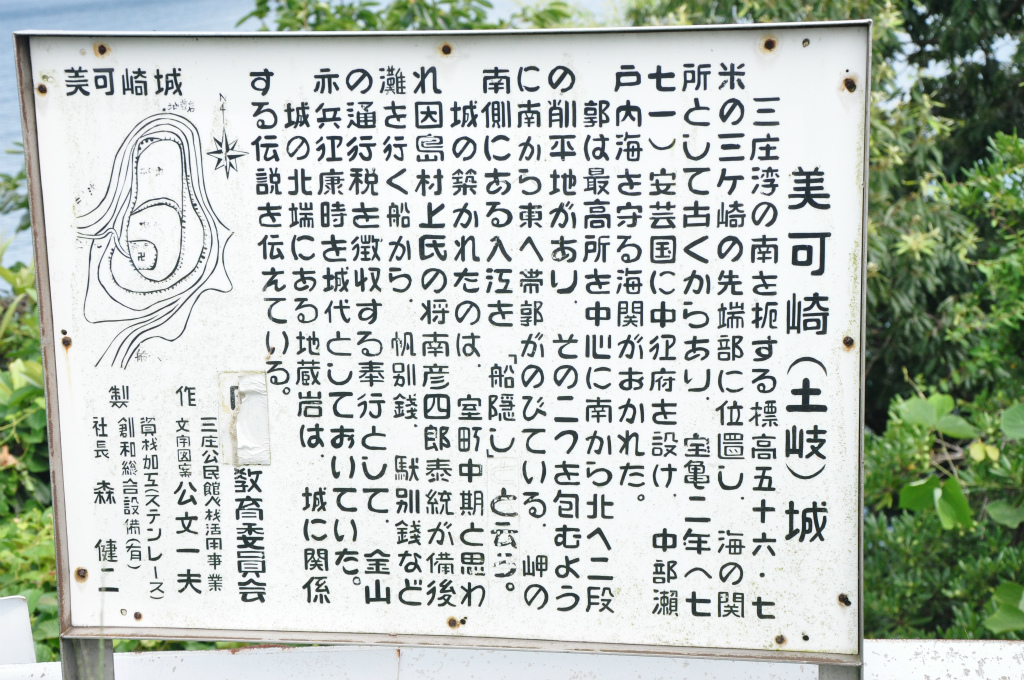 美可崎(土岐)城
三庄湾の南を扼する標高五十六・七
米の三ケ崎の先端部に位置し、海の関
所として古くからあり、宝亀二年(七
七一)安芸国に中衛府を設け、中部瀬
戸内海を守る海関がおかれた。
郭は最高所を中心に南から北へ二段
の削平地があり、その二つを包むよう
に南から東へ帯郭がのびている。岬の
南側にある入江を「船隠し」と云う。
城の築かれたのは、室町中期と思わ
れ因島村上氏の将南彦四郎泰統が備後
灘を行く船から、帆別銭、駄別銭など
の通行税を徴収する奉行として、金山
亦兵衛康時を城代としておいていた。
城の北端にある地蔵岩は、城に関係
する伝説を伝えている。
教育委員会
三庄公民館人材活用事業
作 文字図案 公文一夫
資材加工(ステンレース)
創和総合設備(有)
製 社長 森 健二
美可崎城
N